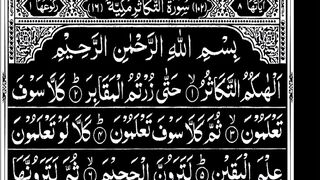 اٰیاتها ٨ (١٠٢) سُوْرَةُ التَّكَاثُرِ مَكِّيَّةٌ (١٦) رکوعها ١
بِسْمِ اللّٰهِ الرَّحْمٰنِ الرَّحِيْمِ
اَلْهٰىكُمُ التَّكَاثُرُ ۙ﴿١﴾ حَتّٰى زُرْتُمُ الْمَقَابِرَ ؕ﴿٢﴾ كَلَّا سَوْفَ
تَعْلَمُوْنَ ۙ﴿٣﴾ ثُمَّ كَلَّا سَوْفَ تَعْلَمُوْنَ ؕ﴿٤﴾ كَلَّا لَوْ تَعْلَمُوْنَ
عِلْمَ الْيَقِيْنِ ؕ﴿٥﴾ لَتَرَوُنَّ الْجَحِيْمَ ۙ﴿٦﴾ ثُمَّ لَتَرَوُنَّهَا